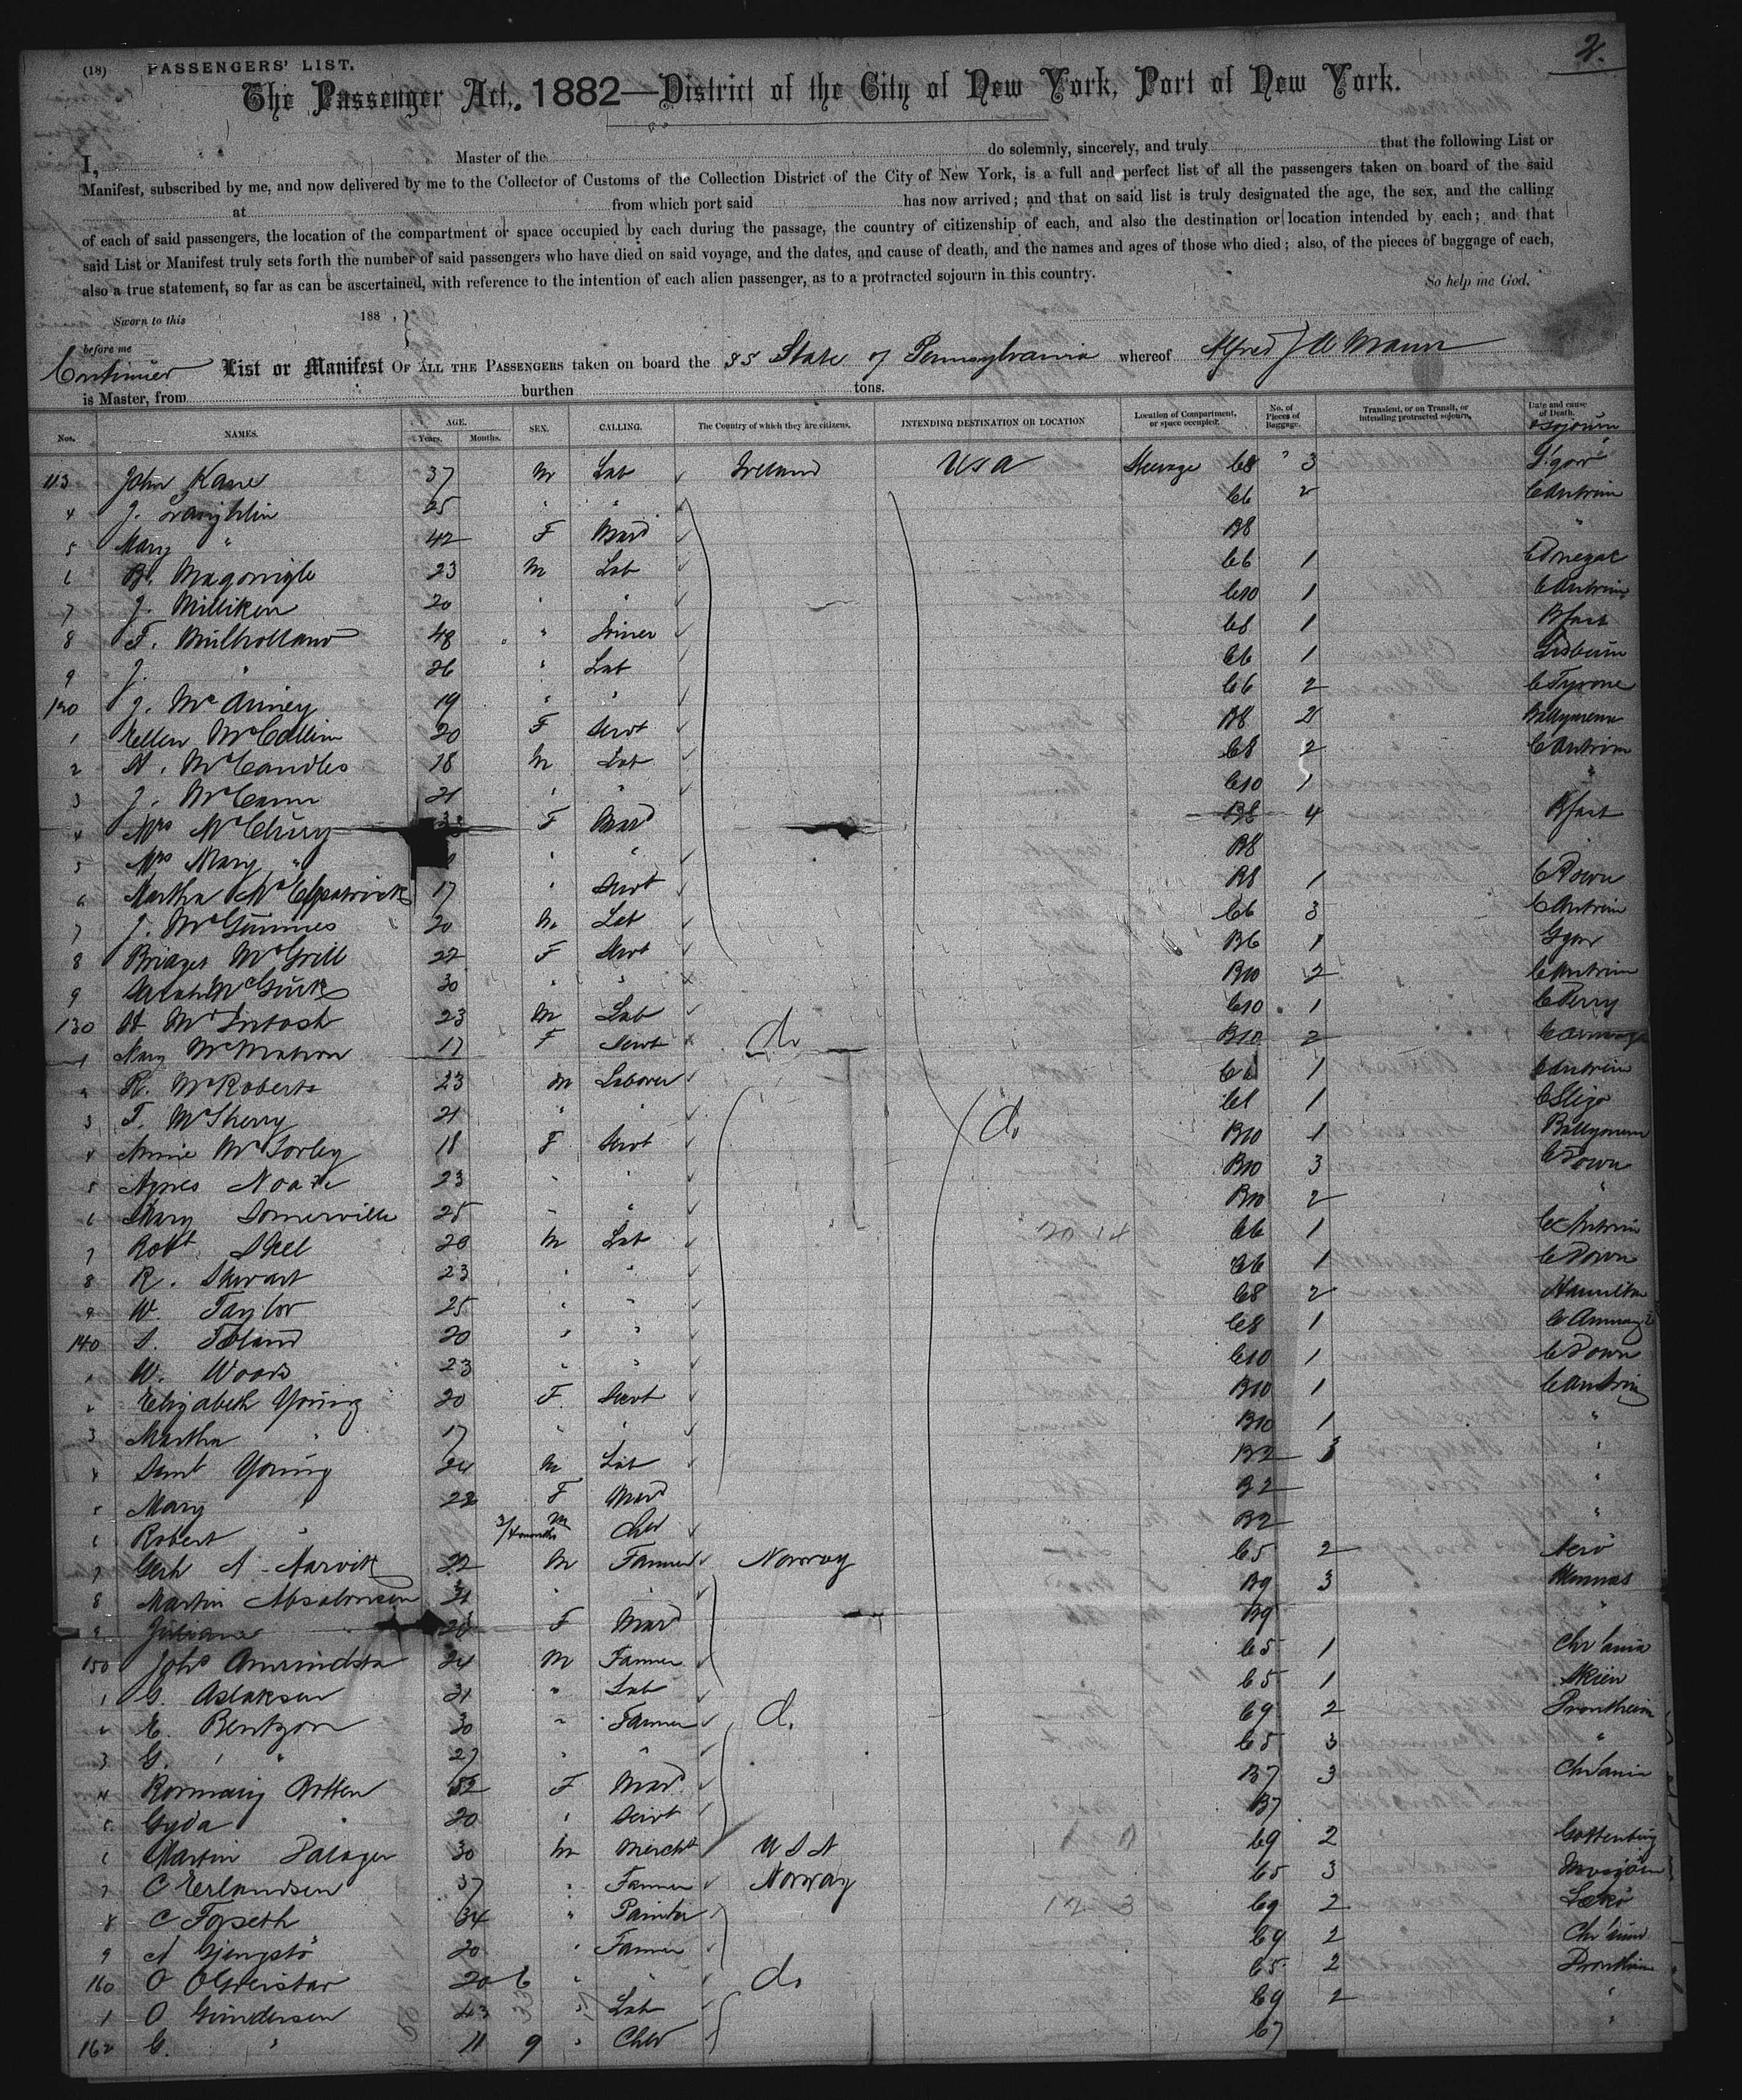 2.
(18) PASSENGERS' LIST.
The Passenger Act, 1882—District of the City of New York, Port of New York.
I, Master of the do solemnly, sincerely, and truly that the following List or
Manifest, subscribed by me, and now delivered by me to the Collector of Customs of the Collection District of the City of New York, is a full and perfect list of all the passengers taken on board of the said
at from which port said has now arrived; and that on said list is truly designated the age, the sex, and the calling
of each of said passengers, the location of the compartment or space occupied by each during the passage, the country of citizenship of each, and also the destination or location intended by each; and that
said List or Manifest truly sets forth the number of said passengers who have died on said voyage, and the dates, and cause of death, and the names and ages of those who died; also, of the pieces of baggage of each,
also a true statement, so far as can be ascertained, with reference to the intention of each alien passenger, as to a protracted sojourn in this country. So help me God.
Sworn to this 188 ,
before me
Continued List or Manifest OF ALL THE PASSENGERS taken on board the SS State of Pennsylvania whereof Alfred J A Mann
is Master, from burthen tons.
Nos. NAMES. AGE. Years. Months. SEX. CALLING. The Country of which they are citizens. INTENDING DESTINATION OR LOCATION Location of Compartment, or space occupied. No. of Pieces of Baggage. Transient, or on Transit, or intending protracted sojourn. Date and cause of Death. sojourn
113 John Kane 37 M Lab Ireland USA Steerage C8 3 Sgow
4 J. Loughlin 25 " " C6 2 C Antrim
5 Mary " 42 F Mard B8 "
6 B. Magonigle 23 M Lab C6 1 C Donegal
7 J. Milliken 20 " " C10 1 C Antrim
8 F. Mulholland 48 " Joiner C8 1 Bfast
9 J. " 26 " Lab C6 1 Lisburn
120 J. McAviney 19 " " C6 2 C Tyrone
1 Ellen McCollim 20 F Servt B8 2 Ballymena
2 A. McCandles 18 M Lab C8 2 C Antrim
3 J. McCann 21 " " C10 1 "
4 Mrs McClurg F Mard B8 4 Bfast
5 Mrs Mary " " " B8
6 Martha McElpatrick 17 " Servt B8 1 C Down
7 J. McGuinnes 20 M Lab C6 3 C Antrim
8 Bridget McGrill 22 F Servt B6 1 Sgow
9 Sarah McGurk 30 " " B10 2 C Antrim
130 A McIntosh 23 M Lab C10 1 C Derry
1 Mary McMahon 17 F Servt do B10 2 C Armagh
2 R. McRoberts 23 M Laborer 1 C Antrim
3 T. McSherry 21 " " 1 C Sligo
4 Annie McSorley 18 F Servt do B10 1 Ballymena
5 Agnes Noade 23 " " B10 3 C Down
6 Mary Somerville 25 " " B10 2 "
7 Robt Skel 20 M Lab C6 1 C Antrim
8 R. Stewart 23 " " C6 1 C Down
9 W. Taylor 25 " " C8 2 Hamilton
140 S. Toland 20 " " C8 1 C Armagh
1 W. Woods 23 " " C10 1 C Down
2 Elizabeth Young 20 F Servt B10 1 C Antrim
3 Martha " 17 " " B10 1 "
4 Saml Young 24 M Lab B2 3 "
5 Mary 22 F Mard B2 "
6 Robert " 3/4 months M Chld B2 "
7 Gerh A Narvik 22 M Farmer Norway C5 2
8 Martin Absalonsen 31 " " B9 3
9 Juliana F Mard B9 "
150 Johs Amundsta 24 M Farmer C5 1 Chr'ania
1 G. Aslaksen 31 " Lab C5 1 Skien
2 E. Bentzon 30 " Farmer do C9 2 Drontheim
3 G. " 27 " " C5 3 "
4 Rosmaig Botten 52 F Mard B7 3 Chr'ania
5 Gyda 20 " Servt B7
6 Martin Dalager 30 M Mercht USA C9 2 Gottenburg
7 C Erlandsen 37 " Farmer Norway C5 3 Mosjöen
8 C Foseth 34 " Painter C9 2 Lekö
9 A Gjengstö 20 " Farmer C9 2 Chr'ania
160 O OGreistar 20 6 " " do C5 2 Drontheim
1 O Gundersen 43 " Lab C9 2 "
162 G. " 11 9 " Chld C7 "